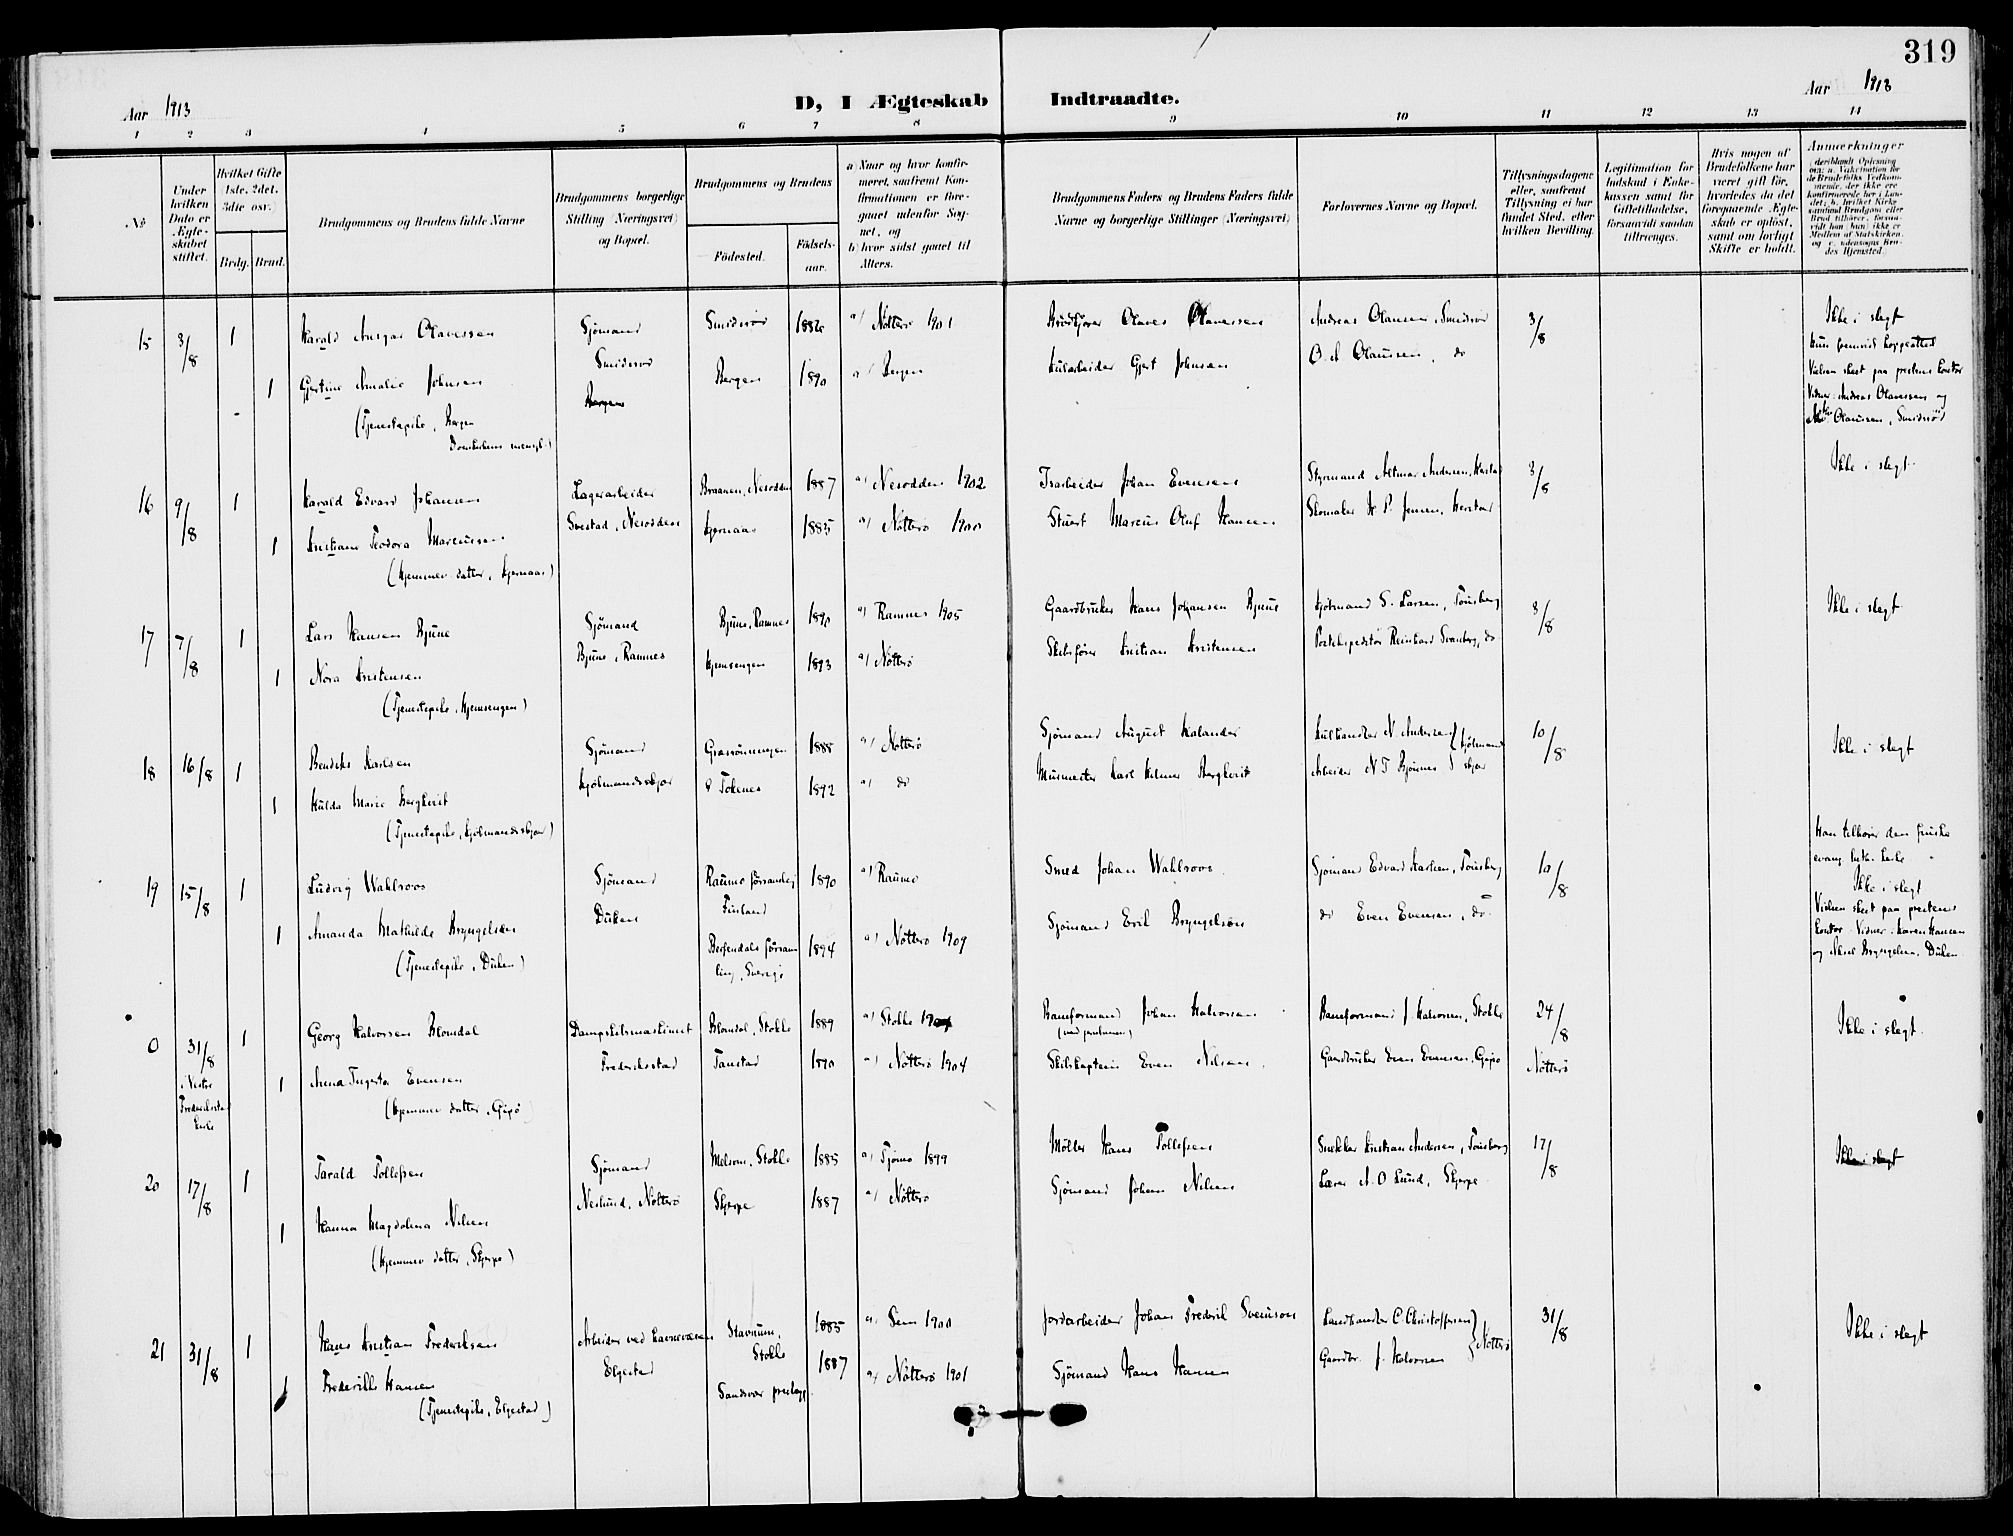 319
Aar 1913
D, I Ægteskab Indtraadte.
Aar 1913
1 2 3 4 5 6 7 8 9 10 11 12 13 14
№
Under hvilken Dato er Ægteskabet stiftet.
Hvilket Gifte (1ste, 2det, 3die osv.)
Brdg. Brud.
Brudgommens og Brudens fulde Navne
Brudgommens borgerlige Stilling (Næringsvei) og Bopæl.
Brudgommens og Brudens
Fødested.
Fødselsaar.
a) Naar og hvor konfirmeret, saafremt Konfirmationen er foregaaet udenfor Sognet, og
b) hvor sidst gaaet til Alters.
Brudgommens Faders og Brudens Faders fulde Navne og borgerlige Stillinger (Næringsvei)
Forlovernes Navne og Bopæl.
Tillysningsdagene eller, saafremt Tillysning ei har fundet Sted, efter hvilken Bevilling.
Legitimation for Indskud i Enkekassen samt for Giftetilladelse, forsaavidt saadan tiltrænges.
Hvis nogen af Brudefolkene har været gift før, hvorledes da det foregaaende Ægteskab er opløst, samt om lovligt Skifte er holdt.
Anmerkninger
15 3/8 1 Harald Ansgar Olavessen Sjømand Smidsrød 1886 a) Nøtterø 1901 Olaves Olavessen Andreas Olausen, Smidsrød 3/8 Ikke i slegt
Smidsrød
1 Gjertine Amalie Johnsen Bergen Bergen 1890 a) Bergen Gjert Johnsen O. A. Olaussen, do
(Tjenestepike, Bergen
Vielsen skeet paa prestens kontor
Vidner: Andreas Olavessen og
Olaussen, Smidsrød
16 9/8 1 Harald Edvard Johansen Lagerarbeider Braanen, Nesodden 1887 a) Nesodden 1902 Isarbeider Johan Evensen Styrmand Altmar Andersen, Herstad 3/8 Ikke i slegt
Svestad, Nesodden
1 Kristiane Teodora Marcussen Kjernaas 1885 a) Nøtterø 1900 Stuert Marcus Oluf Hansen Skomaker H. P. Jensen, Herstad
(Hjemmev. datter, Kjernaas)
17 7/8 1 Lars Hansen Bjune Sjømand Bjune, Ramnes 1890 a) Ramnes 1905 Gaardbruker Hans Johansen Bjune Kjøbmand S. Larsen, Tønsberg 3/8 Ikke i slegt
Bjune, Ramnes
1 Nora Kristensen Hjemsengen 1893 a) Nøtterø Skibsfører Kristian Kristensen Reinhard Svanberg, do
(Tjenestepike, Hjemsengen)
18 16/8 1 Bendiks Karlsen Sjømand 1888 a) Nøtterø Sjømand August Kalander N. Andersen 10/8 Ikke i slegt
Kjøbmandsskjær
1 Hulda Marie Bergkvist Tokenes 1892 a) do Murmester Karl Hilmer Bergkvist Arbeider N. T. Bjønnes
(Tjenestepike, Kjøbmandsskjær)
19 15/8 1 Ludvig Wahlroos Sjømand Raumo forsamling Finland 1890 a) Raumo Smed Johan Wahlroos Sjømand Edvard Karlsen, Tønsberg 10/8 Han tilhører den finske
evang. luth. kirke
Duken
Ikke i slegt
1 Amanda Mathilde Bryngelsen forsamling, Sverige 1894 a) Nøtterø 1909 Sjømand Evil Bryngelsen do Even Evensen, do
(Tjenestepike, Duken)
Vielsen skeet paa prestens
kontor. Vidner: Karen Hansen
og Aksel Bryngelsen, Duken
0 31/8 1 Georg Halvorsen Blomdal Dampskibsmaskinist Blomdal, Stokke 1889 a) Stokke 1904 Baneformand Johan Halvorsen Baneformand J. Halvorsen, Stokke 24/8 Ikke i slegt.
(ved jernbanen)
Fredriksstad
1 Anna Ingerta Evensen Tanstad 1890 a) Nøtterø 1904 Skibskaptein Even Nilsen Gaardbruker Evan Evensen, Gipø Nøtterø
(Hjemmev datter, Gipø)
20 17/8 1 Tarald Tollefsen Sjømand Melsom, Stokke 1885 a) Tjømø 1899 Møller Hans Tollefsen Snekker Kristian Andersen, Tønsberg 17/8 Ikke i slegt
Neslund, Nøtterø
1 Hanna Magdalena Nilsen Skjerpe 1887 a) Nøtterø Sjømand Johan Nilsen Lærer A. O Lund, Skjerpe
(Hjemmev datter, Skjerpe)
21 31/8 1 Hans Kristian Fredriksen Arbeider ved havnevæsen Stavnum, Stokke 1885 a) Sem 1900 Jordarbeider Johan Fredrik Svenson Landhandler C. Christoffersen 31/8 Ikke i slegt
Elgestad
1 Fredrikke Hansen Sandsvær prestegj. 1887 a) Nøtterø 1901 Sjømand Hans Hansen Gaardbr. J. Halvorsen Nøtterø
(Tjenestepike, Elgestad)